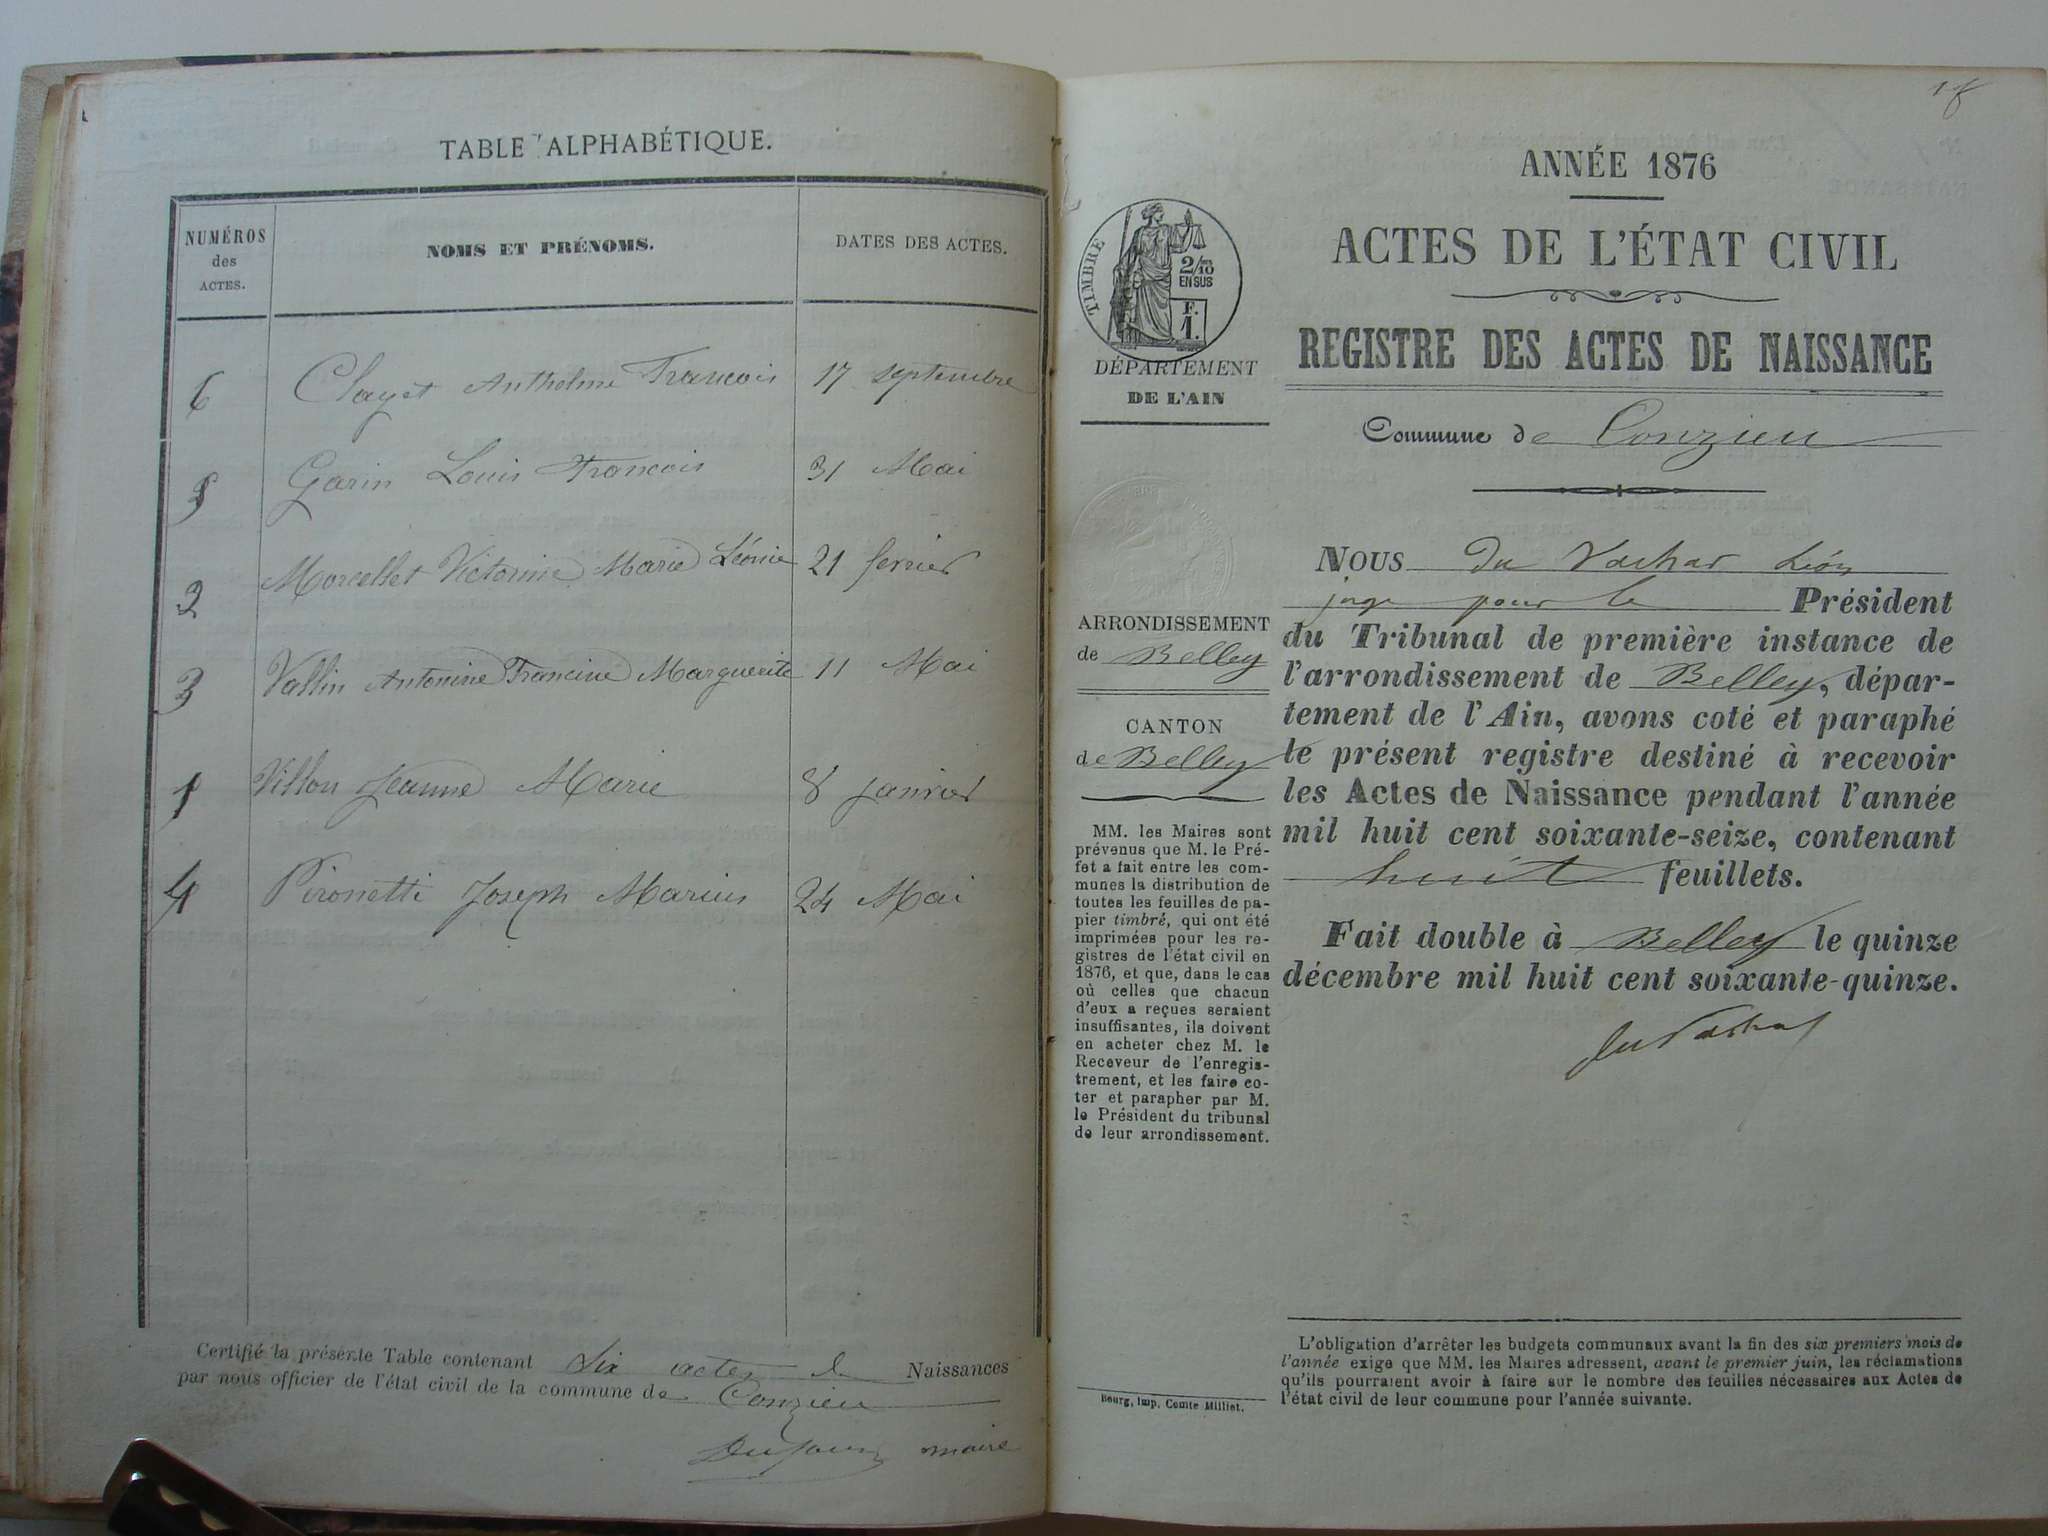 TABLE ALPHABÉTIQUE.
NUMÉROS
des
ACTES.
NOMS ET PRÉNOMS.
DATES DES ACTES.
6 Clayet Anthelme Francois 17 septembre
5 Garin Louis Francois 31 Mai
2 Marcellet Victorine Marie Léonie 21 fevrier
3 Vallin Antonine Francine Marguerite 11 Mai
1 Villon Jeanne Marie 8 janvier
4 Pironetti Joseph Marius 24 Mai
Certifié la présente Table contenant six actes de Naissances
par nous officier de l'état civil de la commune de Conzieu
Dufour maire
ANNÉE 1876
ACTES DE L'ÉTAT CIVIL
REGISTRE DES ACTES DE NAISSANCE
Commune de Conzieu
TIMBRE
2/10
EN SUS
F.
1.
DÉPARTEMENT
DE L'AIN
ARRONDISSEMENT
de Belley
CANTON
de Belley
MM. les Maires sont
prévenus que M. le Pré-
fet a fait entre les com-
munes la distribution de
toutes les feuilles de pa-
pier timbré, qui ont été
imprimées pour les re-
gistres de l'état civil en
1876, et que, dans le cas
où celles que chacun
d'eux a reçues seraient
insuffisantes, ils doivent
en acheter chez M. le
Receveur de l'enregis-
trement, et les faire co-
ter et parapher par M.
le Président du tribunal
de leur arrondissement.
Bourg, Imp. Comte Milliet.
NOUS du Vachat Léon
juge pour le Président
du Tribunal de première instance de
l'arrondissement de Belley, dépar-
tement de l'Ain, avons coté et paraphé
le présent registre destiné à recevoir
les Actes de Naissance pendant l'année
mil huit cent soixante-seize, contenant
huit feuillets.
Fait double à Belley le quinze
décembre mil huit cent soixante-quinze.
du Vachat
L'obligation d'arrêter les budgets communaux avant la fin des six premiers mois de
l'année exige que MM. les Maires adressent, avant le premier juin, les réclamations
qu'ils pourraient avoir à faire sur le nombre des feuilles nécessaires aux Actes de
l'état civil de leur commune pour l'année suivante.